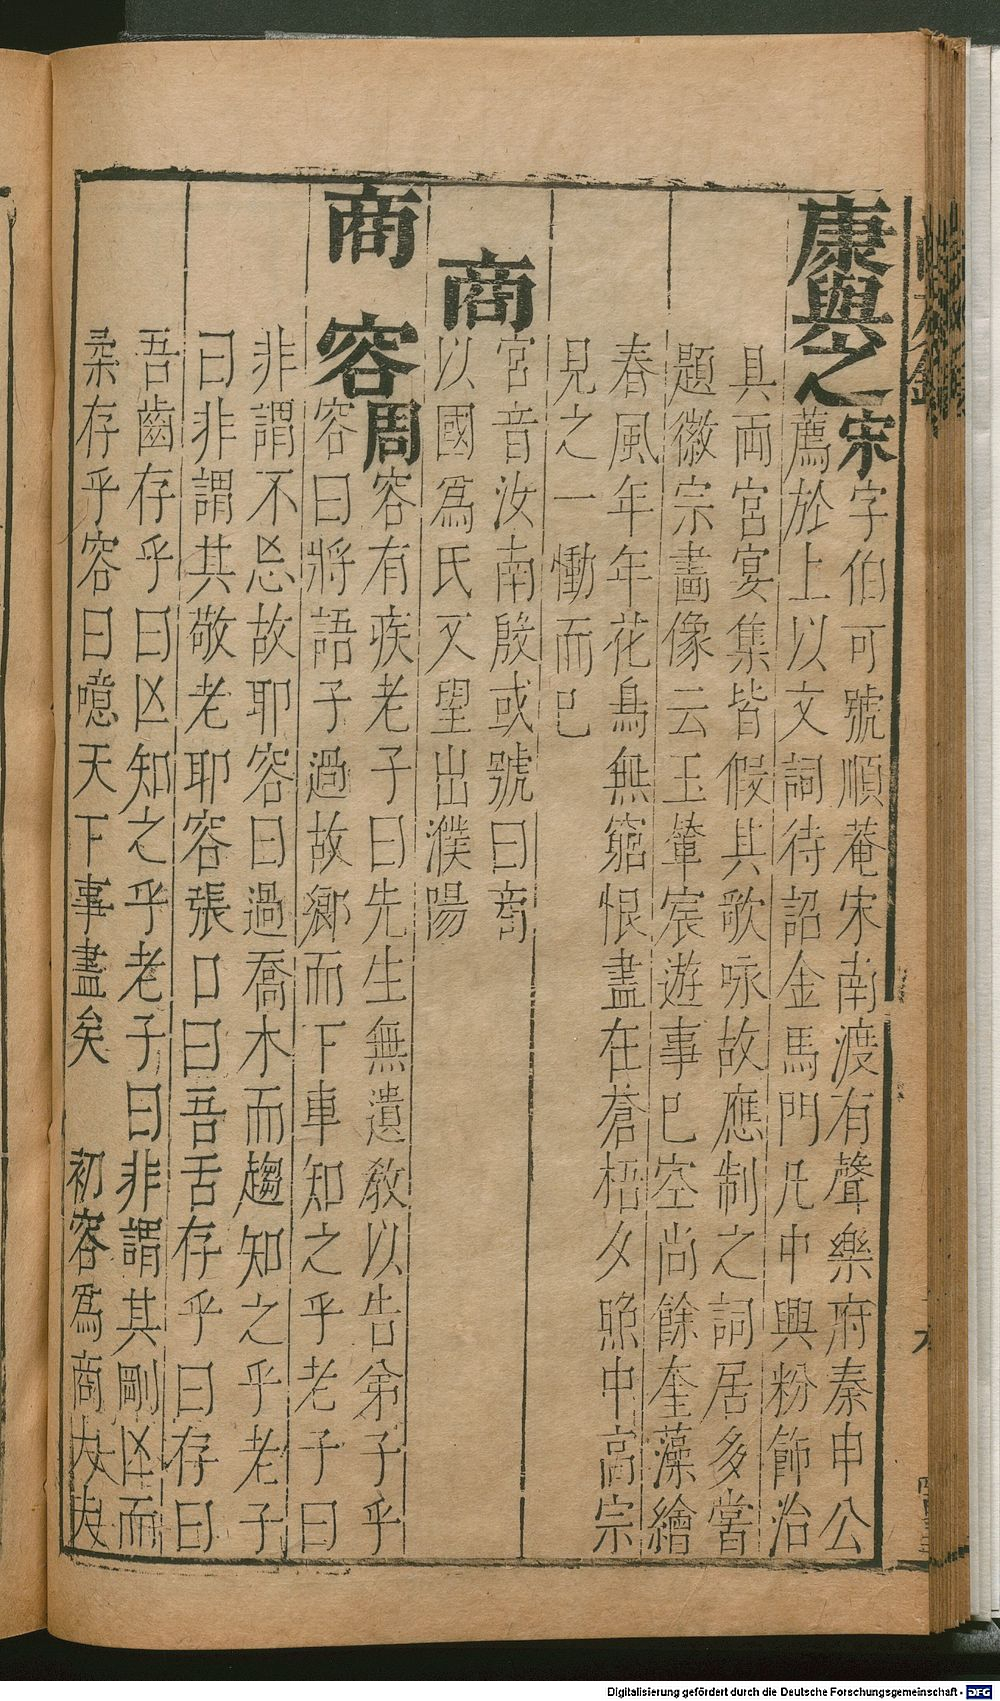 康與之宋字伯可號順菴宋南渡有聲樂府秦申公
薦於上以文詞待詔金馬門凡中興粉飾治
具両宮宴集皆假其歌咏故應制之詞居多嘗
題徽宗畵像云玉輦宸遊事巳空尚餘奎藻繪
春風年年花鳥無窮恨盡在蒼梧夕照中高宗
見之一慟而巳
商宮音汝南殷或號曰商
以國爲氏又望出濮陽
商容周容有疾老子曰先生無遺敎以告弟子乎
容曰將語子過故鄉而下車知之乎老子曰
非謂不忘故耶容曰過喬木而趨知之乎老子
曰非謂其敬老耶容張口曰吾舌存乎曰存曰
吾齒存乎曰亾知之乎老子曰非謂其剛亾而
柔存乎容曰噫天下事盡矣 初容爲商大夫
Digitalisierung gefördert durch die Deutsche Forschungsgemeinschaft - DFG